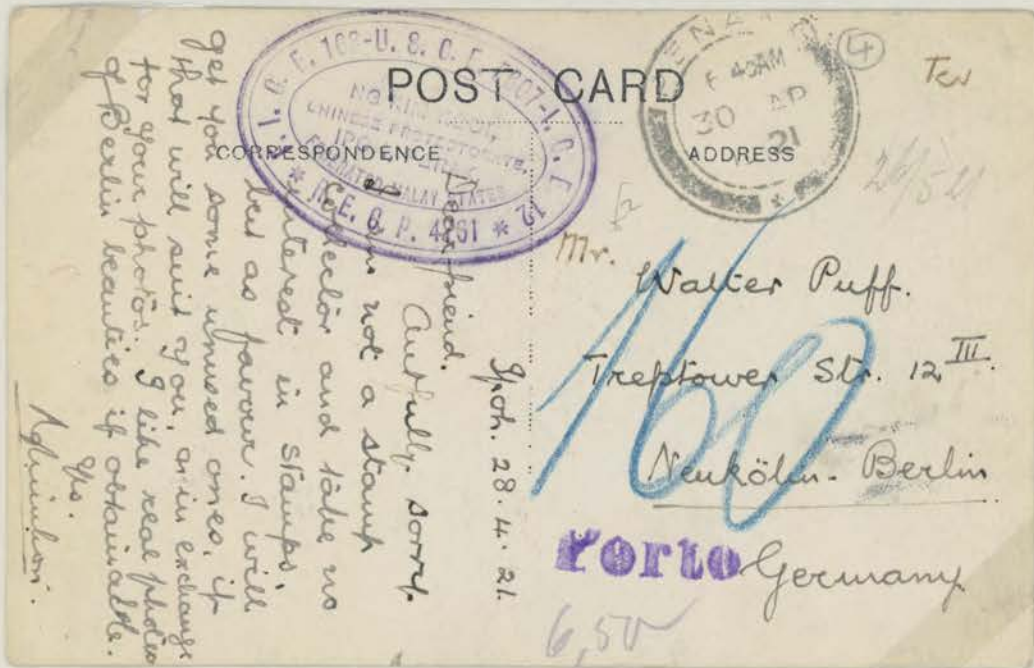 POST CARD
CORRESPONDENCE
ADDRESS
I. G. E. 168-U. S. C. E. 
CHINESE PROTECTORATE,
FEDERATED MALAY STATES
N. E. G. P. 4261
PENANG
45AM
30 AP
21
4
Ipoh. 28.4.21.
Dear friend.
Awfully sorry.
am not a stamp
Collector and take no
interest in stamps,
but as favour. I will
get you some unused ones, if
that will suit you, as in exchange
for your photos. I like real photos
of Berlin beauties if obtainable.
Yrs.
Mr.
Walter Puff.
Treptower Str. 12 III.
Neukölln-Berlin
Germany
160
Porto
6,50